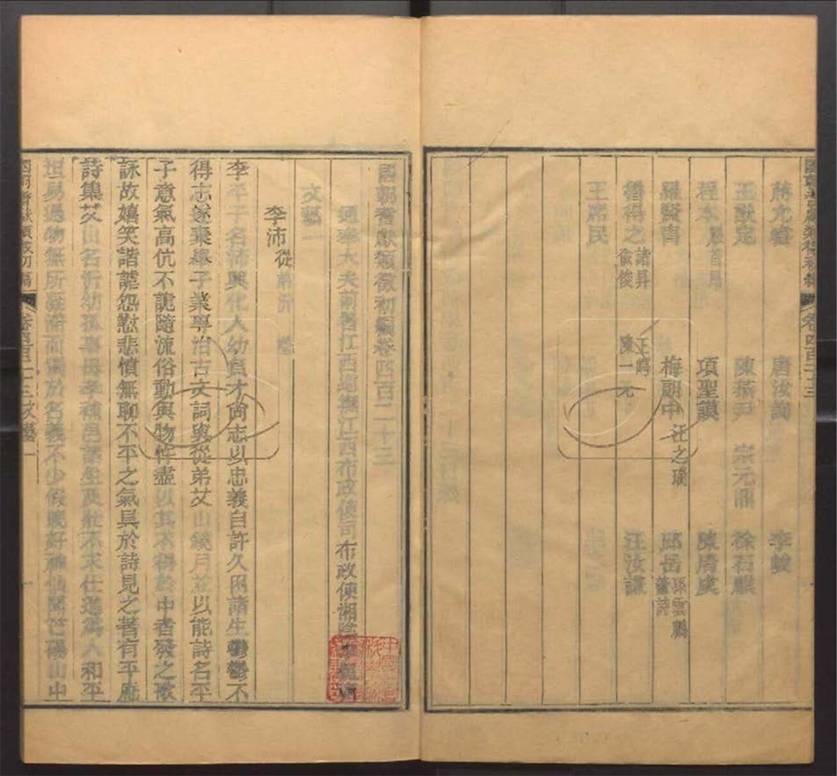 蔣尤 唐汝詢 李峻
王猷定 陳 尹 宗元鼎 徐石麒
程本 項聖謨 陳周
羅賢 梅朗中 汪之瑜 邱岳 孫雲鵬
得之 諸昇 俊 王 陳一元 汪汝謙
王 民
卷四百二十三
國朝耆獻類徵初編卷四百二十三
通奉大夫前署江西巡撫江西布政使司布政使湘陰
文藝一
李沛 從 沂
李平子名沛興化人幼負才尚志以忠義自許久困諸生鬱鬱不
得志遂棄舉子業專治古文詞與從弟艾山鏡月並以能詩名平
子意氣高伉不詭隨流俗動與物忤盡以其不得於中者發之歌
詠故嬉笑諧謔怨懟悲憤無聊不平之氣具於詩見之著有平庵
詩集艾山名沂幼孤事母孝補邑諸生及壯不求仕進為人和平
坦易遇物無所 而獨於名義不少假晚好神仙 芒碭山中
國朝耆獻類徵初編 卷四百二十三文藝一